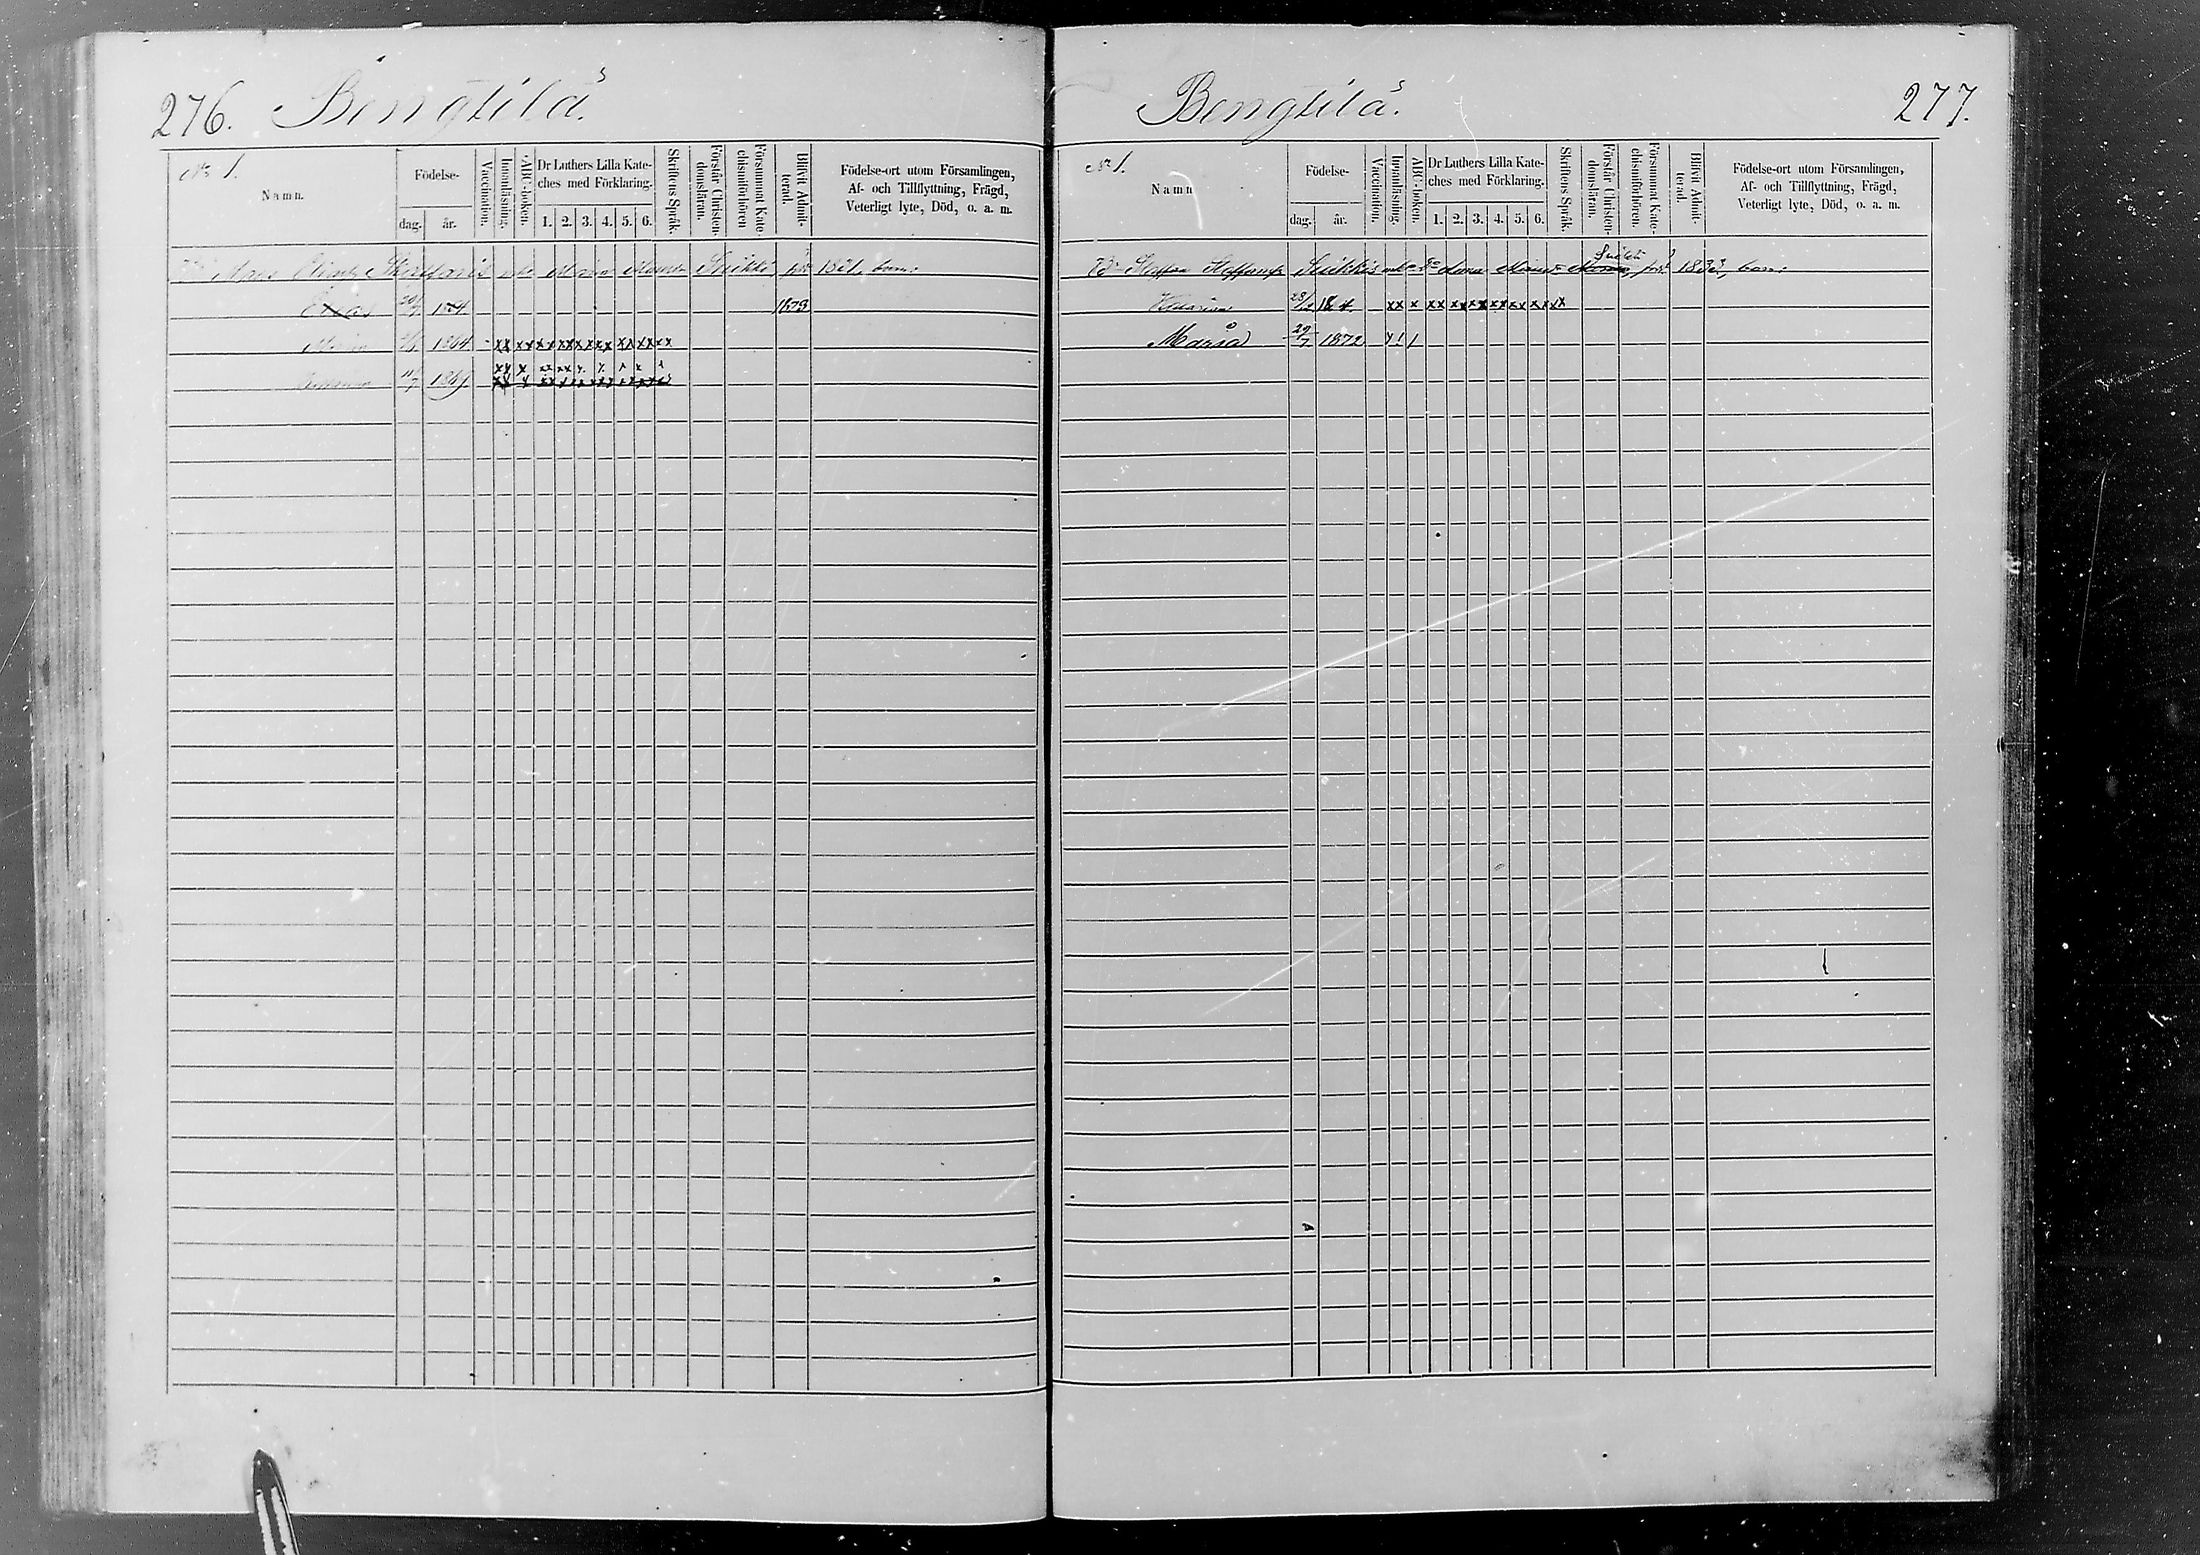 276. Bengtilä.
№ 1.
Namn.
Födelse-
dag. år.
Vaccination.
Innanläsning.
ABC-boken.
Dr Luthers Lilla Kate-
ches med Förklaring.
1. 2. 3. 4. 5. 6.
Skriftens Språk.
Förstår Christen-
domsläran.
Försummat Kate-
chismiförhören
Blifvit Admit-
terad.
Födelse-ort utom Församlingen,
Af- och Tillflyttning, Frägd,
Veterligt lyte, Död, o. a. m.
Suikki 1821, barn:
1873
1864
11/7
Bengtilä. 277.
№ 1.
Namn
Födelse-
dag. år.
Vaccination.
Innanläsning.
ABC-boken.
Dr Luthers Lilla Kate-
ches med Förklaring.
1. 2. 3. 4. 5. 6.
Skriftens Språk.
Förstår Christen-
domsläran.
Försummat Kate-
chismiförhören.
Blifvit Admit-
terad.
Födelse-ort utom Församlingen,
Af- och Tillflyttning, Frägd,
Veterligt lyte, Död, o. a. m.
Staffan Staffanss Suikkis 1833, barn:
Maria 29/7 1872